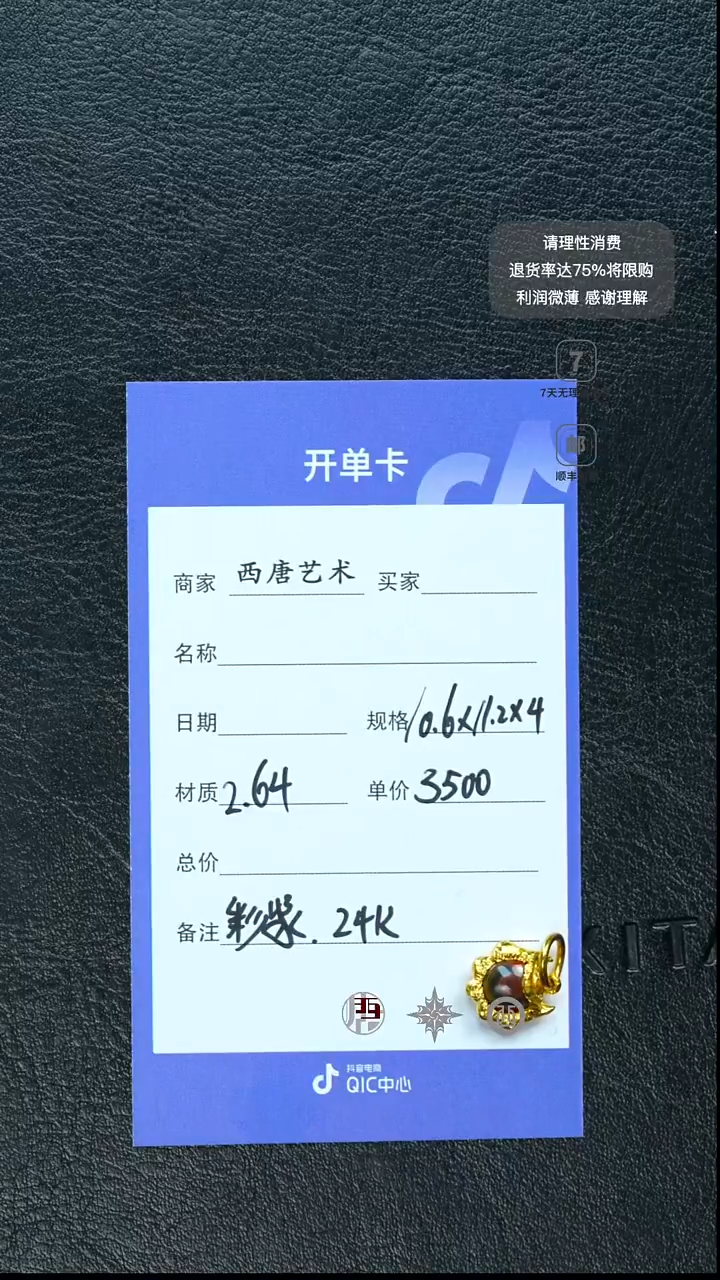 请理性消费
退货率达75%将限购
利润微薄 感谢理解
7
7天无理
邮
顺丰
开单卡
商家 西唐艺术 买家
名称
日期 规格 10.6x11.2x4
材质 2.64 单价 3500
总价
备注 彩柴. 24K
KITA
抖音电商
QIC中心